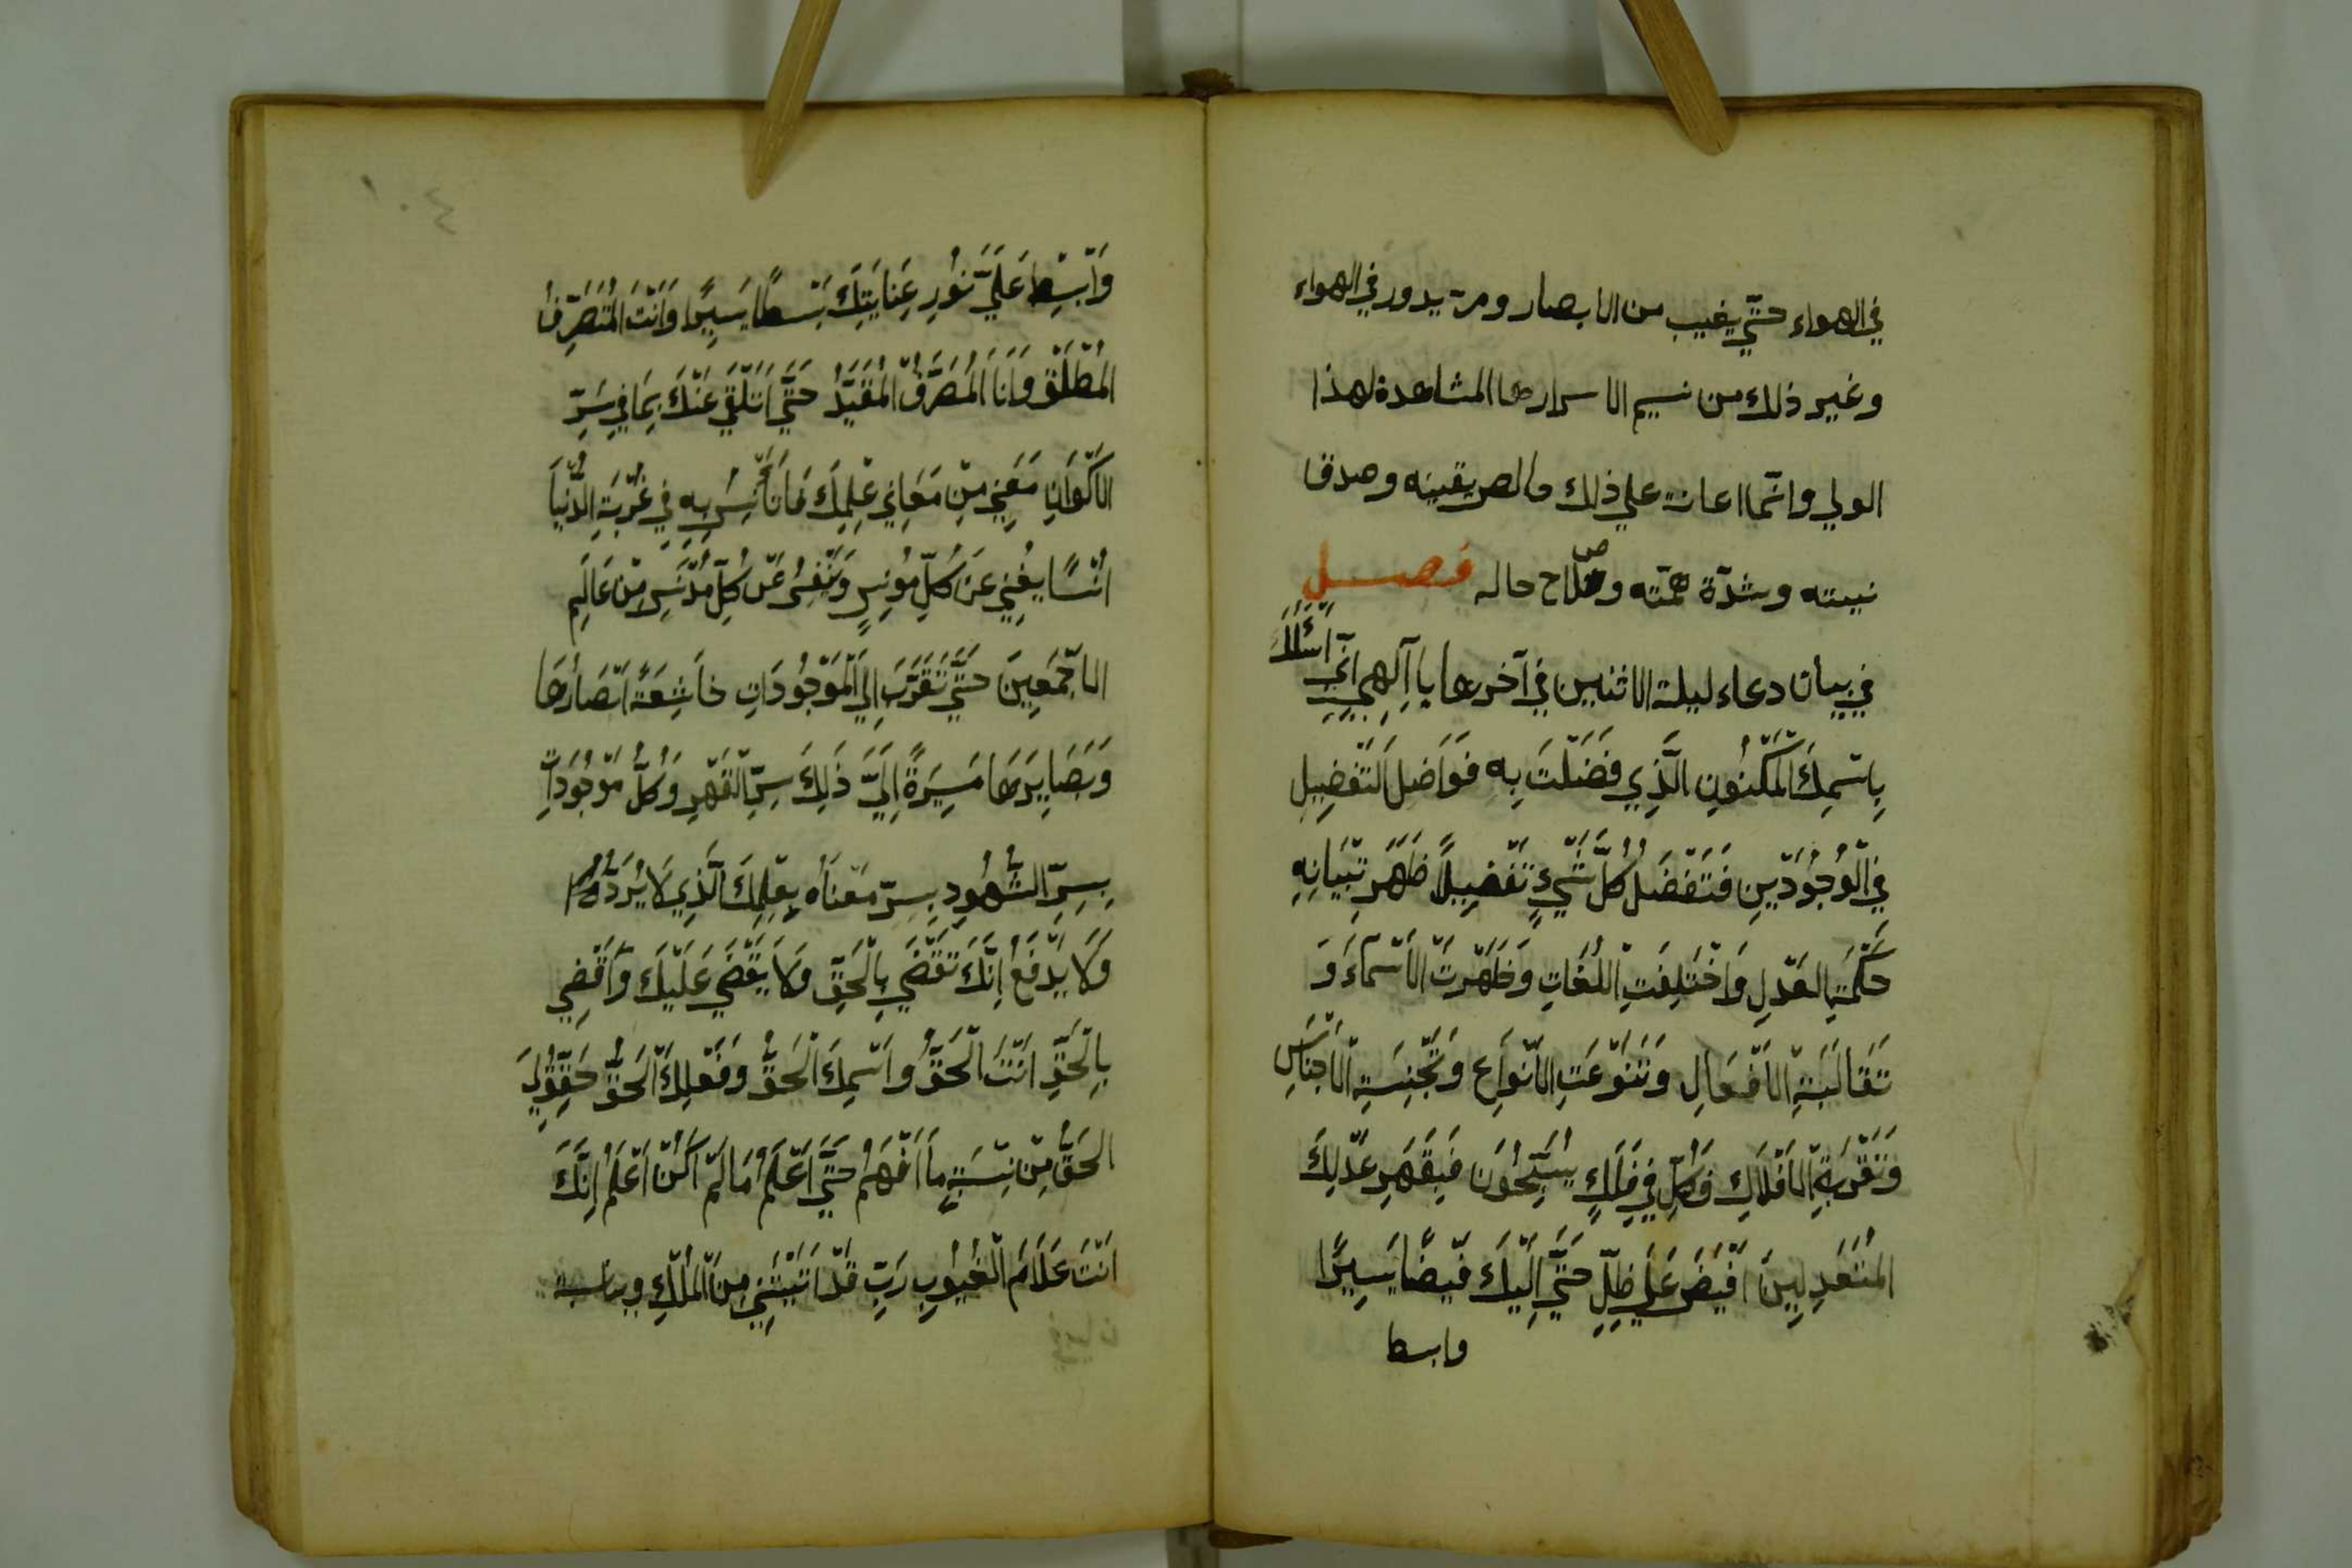 في الهواء حتّي يغيب من الابصار ومن يدور في الهواء
وغير ذلك من نسيم الاسرارها المشاهدة لهذا
الولي وانّما اعانه علي ذلك خالص يقينه وصدق
نيته وشدّة همّته وصلاح حاله فصل
في بيان دعاء ليلة الاثنين في آخرها يا اِلٰهِي اِنّي اَسْئَلُكَ
بِاسْمِكَ الْمَكْنُونِ الَّذِي فَضَّلْتَ بِهِ فَوَاضِلَ التَّفْضِيلِ
فِي الْوُجُودَيْنِ فَتَفَضَّلَ كُلُّ شَيْءٍ تَفْضِيلًا ظَهَرَ تِبْيَانِهِ
حِكْمَةِ الْعَدْلِ وَاخْتَلَفَتِ اللُّغَاتِ وَظَهَرَتْ الْاَسْمَاءَ وَ
تَقَالَبَتِ الْاَفْعَالِ وَتَنَوَّعَتِ الْاَنْوَاعِ وَتَجَنِسَةِ الْاَجْنَاسِ
وَتَقْرَبَةِ الْاَفْلَاكِ وَكُلٌّ فِي فَلَكٍ يُسَبِّحُونَ فَبِقَهْرِ عَدْلِكَ
الْمُتَعَدِلِينَ اَفِيضَ عَلَيَّ ظِلِّ حَتَّي اِلَيْكَ فَيْضًا يَسِيرًا
وابسط
١٠٤
وَابْسِطْ عَلَيَّ نُورِ عِنَايَتِكَ بَسْطًا يَسِيرًا وَاَنْتَ الْمُتَصَرِّفُ
الْمُطْلَقْ وَاَنَا الْمُصَرَّفُ الْمُقَيَّدُ حَتَّي اَتَلَقَّي عَنْكَ بِمَا فِي سِرِّ
الْاَكْوَانِ مَعْنِي مِنْ مَعَانِي عِلْمِكَ فَاَنَاْنِسُ بِهِ فِي غُرْبَتِ الدُّنْيَا
اُنْسًا يُغْنِي عَنْ كُلِّ مُونِسٍ وَتَنْفِسُ عَنْ كُلِّ مُدْنَسِ مِنْ عَالَمِ
الْاَجْمَعِينَ حَتَّي تَقَرَّبَ اِلَيَّ الْمَوْجُودَاتِ خَاشِعَةً اَبْصَارُهَا
وَبَصَايِرَهَا مَسِيَرةً اِلَيَّ ذَلِكَ سِرِّ الْقَهْرِ وَكُلُّ مَوْجُودَاتِ
بِسِرِّ الشُّهُودِ بِسِرِّ مَعْنَاهُ بِعِلْمِكَ الَّذِي لَا يُرَدُّ
وَلَا يُدْفَعُ اِنَّكَ تَقْضَي بِالْحَقِّ وَلَا يَقْضَي عَلَيْكَ وَاَقْضِي
بِالْحَقِّ اَنْتَ الْحَقُّ وَاسْمِكَ الْحَقُّ وَفَعْلِكَ الْحَقُّ حَقِّقْ لِي
الْحَقُّ مِنْ نِسْبَةِ مَا اَفْهَمُ حَتَّي اَعْلَمُ مَا لَمْ اَكُنْ اَعْلَمُ اِنَّكَ
اَنْتَ عَلَّامُ الْغُيُوبِ رَبِّ قَدْ اَتَيْتَنِي مِنَ الْمُلْكِ وبناسبة